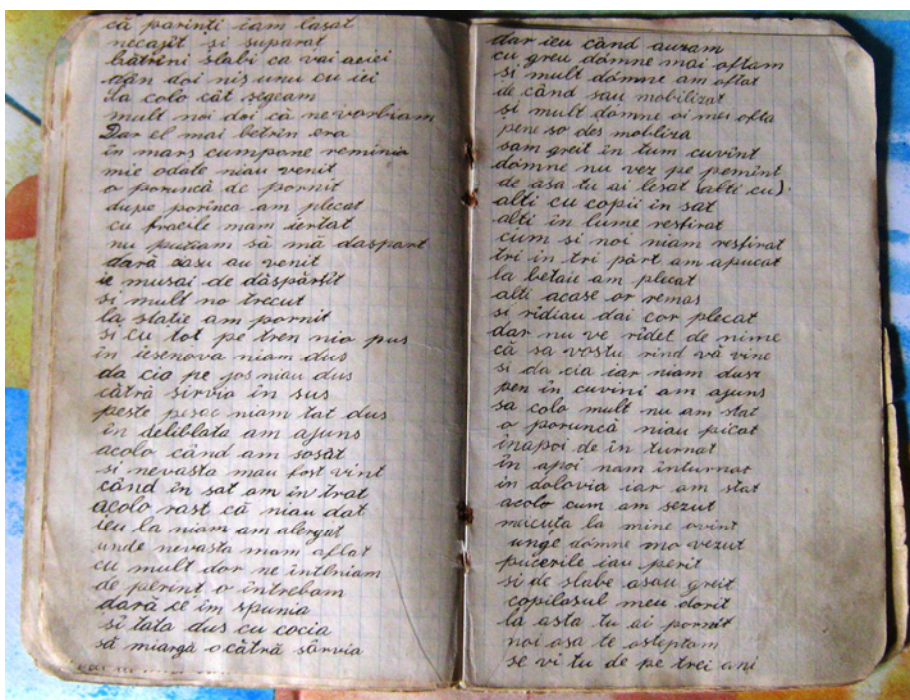 că parinți iam lasat
necașit si suparat
bătrîni slabi ca vai aeiei
dăn doi niș unu cu iei
sa colo cât șegeam
mult noi doi că ne vorbiam
Dar el mai betrin era
în mars cumpone reminia
mie odate niau venit
o poruncă de pornit
dupe porinca am plecat
cu fracile mam iertat
nu puteam să mă daspart
dară casu au venit
ie musai de dăspărtît
si mult no trecut
la statie am pornit
si cu tot pe tren nia pus
în iesenova niam dus
da cia pe jos niau dus
cătră sirvia în sus
peste pesac niam tat dus
în deliblata am ajuns
acolo când am sosât
si nevasta mau fost vint
când în sat am în trat
acolo rast că niau dat
ieu la niam am alergat
unde nevasta mam aflat
cu mult dor ne întlniam
de perint o întrebam
dară ce îm spunia
si tata dus cu cocia
să miargă o cătră sârvia
dar ieu când auzam
cu greu dómne mai oftam
si mult dómne am oftat
de când sau mobilizat
si mult dómne oi mei ofta
pene so des mobliza
sam greit în tum cuvint
dómne nu vez pe pemînt
de asa tu ai lesat (alti cu)
alti cu copii in sat
alti in lume resfirat
cum si noi niam resfirat
tri in tri părt am apucat
la betaie am plecat
alti acase or remas
si ridiau dai cor plecat
dar nu ve ridet de nime
că sa vostu rind vă vine
si da cia iar niam dusr
pen in cuvini am ajuns
sa colo mult nu am stat
o poruncă niau picat
înapoi de în turnat
în apoi nam inturnat
in dolovia iar am stat
acolo cum am sezut
meicuta la mine ovint
unge dómne mo vezut
pucerile iau perit
si de slabe asau greit
copilasul meu dorit
la asta tu ai pornit
noi asa te asteptam
se vi tu de pe trei ani